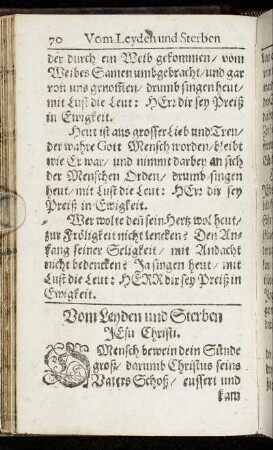 70 Vom Leyden und Sterben
der durch ein Weib gekommen / vom
Weibes Samen umbgebracht / und gar
von uns genom̃en / drumb singen heut /
mit Lust die Leut: HErr dir sey Preiß
in Ewigkeit.
Heut ist aus grosser Lieb und Treu /
der wahre Gott Mensch worden / bleibt
wie Er war / und nimmt darbey an sich
der Menschen Orden / drumb singen
heut / mit Lust die Leut: HErr dir sey
Preiß in Ewigkeit.
Wer wolte deñ sein Hertz wol heut /
zur Fröligkeit nicht lencken? Den An-
fang seiner Seligkeit / mit Andacht
nicht bedencken? Ja singen heut / mit
Lust die Leut: HERR dir sey Preiß in
Ewigkeit.
Vom Leyden und Sterben
JEsu Christi.
O Mensch bewein dein Sünde
groß / darumb Christus seins
Vaters Schoß / eussert und
kam